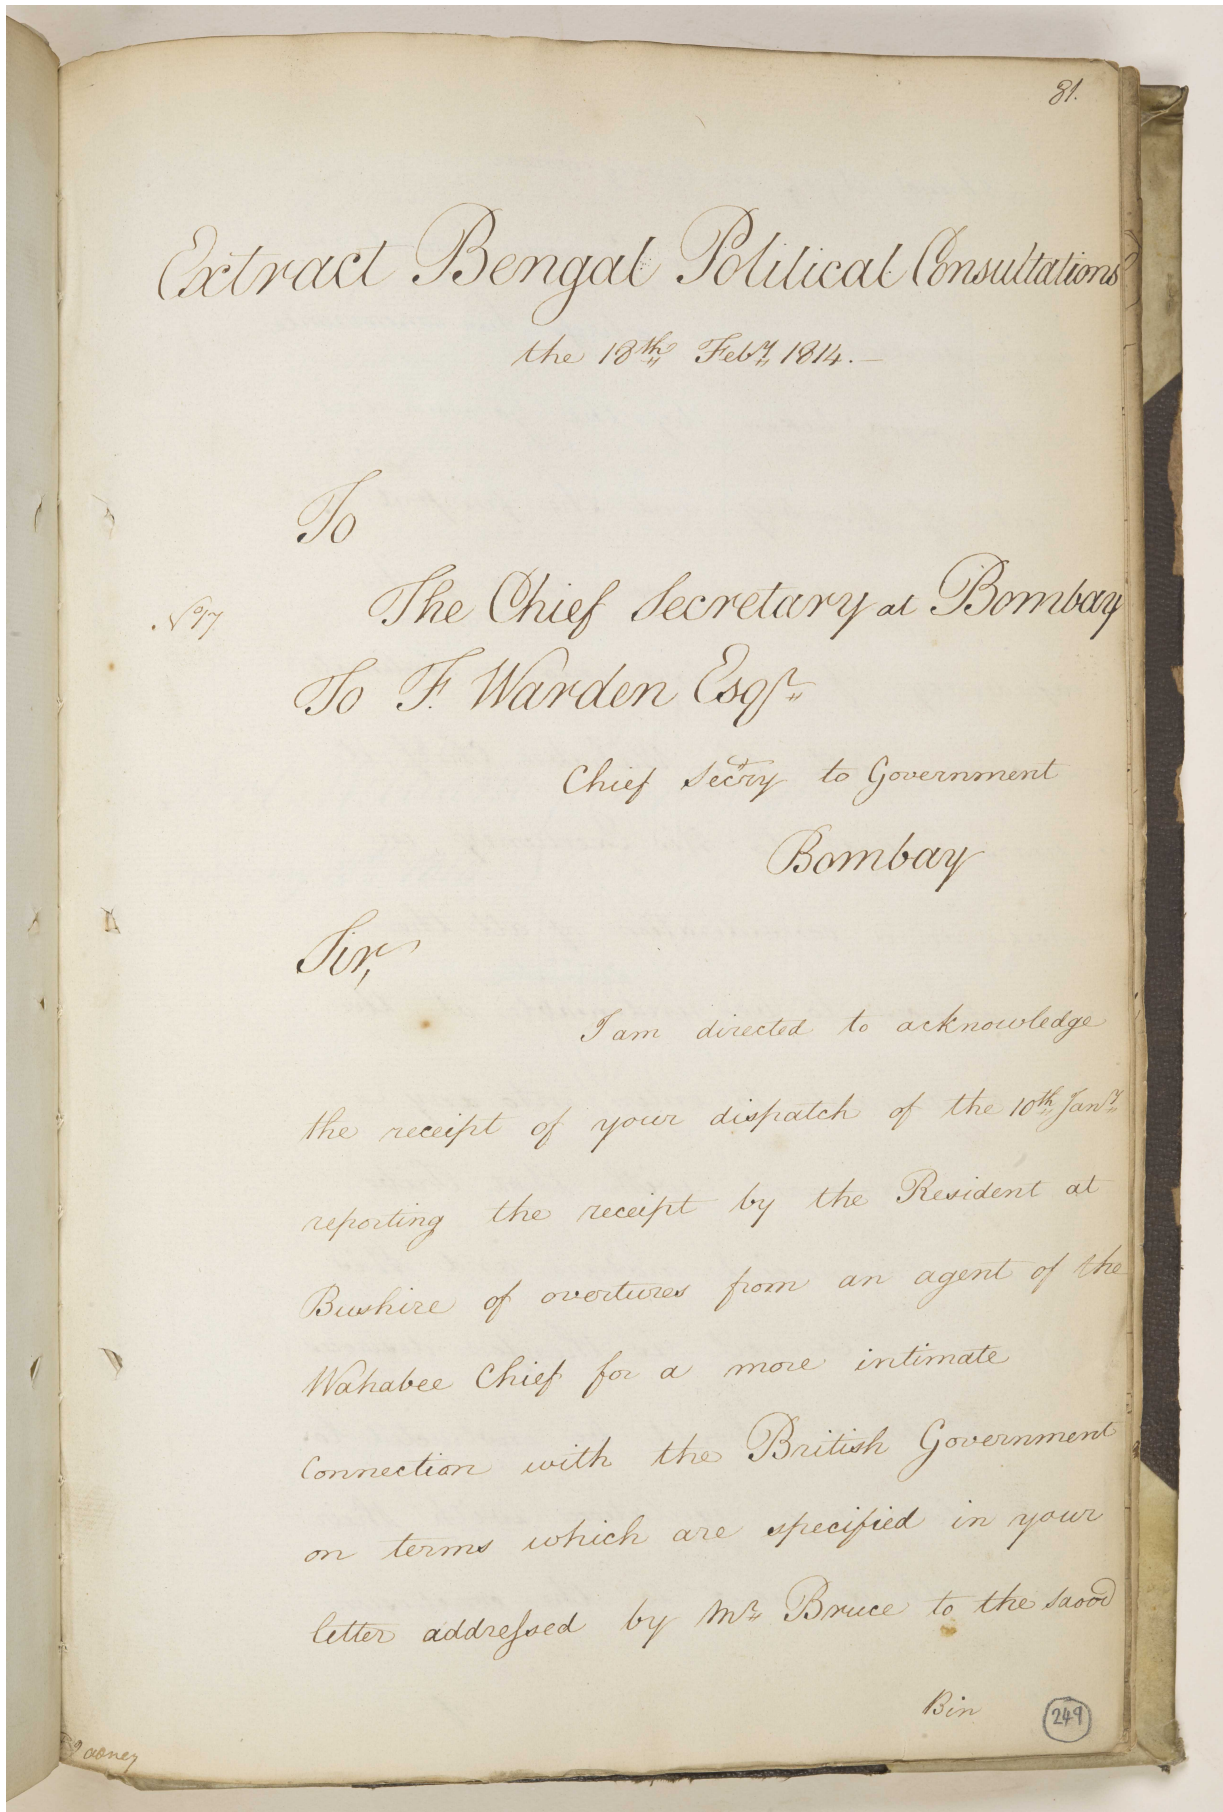 81.
Extract Bengal Political Consultations
the 18th Feby 1814.—
To
No 17
The Chief Secretary at Bombay
To F. Warden Esqr
Chief Secry to Government
Bombay
Sir,
I am directed to acknowledge
the receipt of your dispatch of the 10th Jany
reporting the receipt by the Resident at
Bushire of overtures from an agent of the
Wahabee Chief for a more intimate
Connection with the British Government
on terms which are specified in your
letter addressed by Mr Bruce to the Saood
Bin
249